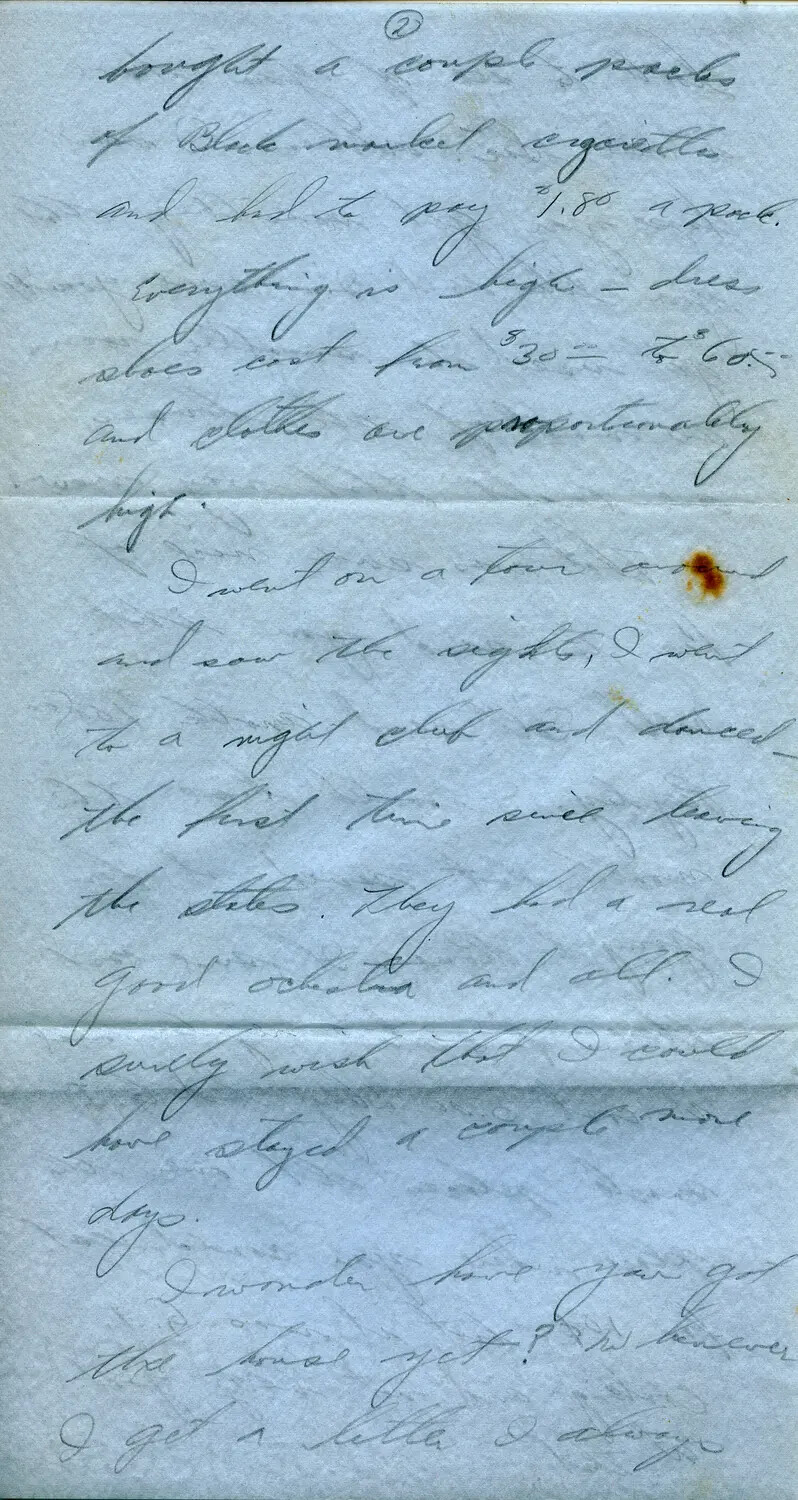 2
bought a couple packs
of Black market cigarettes
and had to pay $1.80 a pack.
Everything is high – dress
shoes cost from $30 – to $60.–
and clothes are proportionately
high.
I went on a tour around
and saw the sights, I went
to a night club and danced –
the first time since leaving
the states. They had a real
good ochestra and all. I
surely wish that I could
have stayed a couple more
days.
I wonder have you got
the house yet? Whenever
I get a letter I always